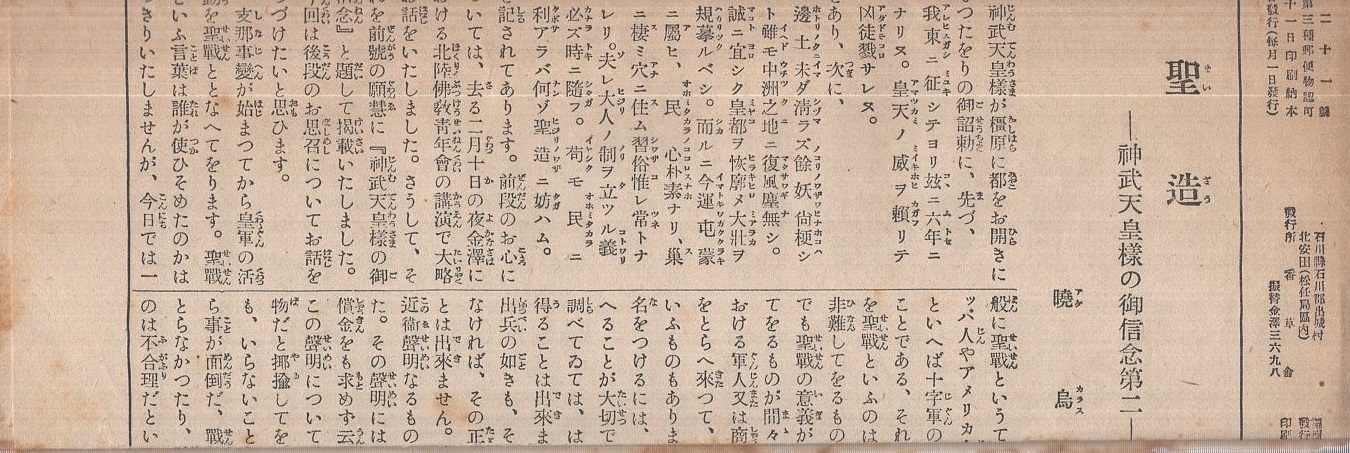 二十一號
第三種郵便物認可
十一日印刷納本
發行(毎月一日發行)
石川縣石川郡出城村
北安田(松任局區內)
發行所 香草舍
振替金澤三六九八
印
聖造
―神武天皇樣の御信念第二―
曉烏
神武天皇樣が橿原に都をお開きに
なつたをりの御詔勅に、先づ、
我東ニ征シテヨリ玆ニ六年ニ
ナリヌ。皇天ノ威ヲ賴リテ
凶徒戮サレヌ。
とあり、次に、
邊土未ダ淸ラズ餘妖尙梗シ
ト雖モ中洲之地ニ復風塵無シ。
誠ニ宜シク皇都ヲ恢廓メ大壯ヲ
規摹ルベシ。而ルニ今運屯蒙
ニ屬ヒ、民心朴素ナリ、巢
ニ棲ミ穴ニ住ム習俗惟レ常トナ
レリ。夫レ大人ノ制ヲ立ツル義
必ズ時ニ隨フ。苟モ民ニ
利アラバ何ゾ聖造ニ妨ハム。
と記されてあります。前段のお心に
ついては、去る二月十日の夜金澤に
おける北陸佛敎靑年會の講演で大略
お話をいたしました。さうして、そ
れを前號の願慧に『神武天皇樣の御
信念』と題して揭載いたしました。
今回は後段のお思召についてお話を
つづけたいと思ひます。
支那事變が始まつてから皇軍の活
動を聖戰ととなへてをります。聖戰
といふ言葉は誰が使ひそめたのかは
つきりいたしませんが、今日では一
般に聖戰というて
ツパ人やアメリカ
といへば十字軍の
ことである、それ
を聖戰といふのは
非難してをるもの
でも聖戰の意義が
てをるものが間々
おける軍人又は商
をとらへ來つて、
いふものもありま
名をつけるには、
へることが大切で
調べてゐては、は
得ることは出來ま
出兵の如きも、そ
なければ、その正
とは出來ません。
近衞聲明なるもの
た。その聲明には
償金をも求めず云
この聲明について
物だと揶揄してを
も、いらないこと
ら事が面倒だ、戰
とらなかつたり、
のは不合理だとい